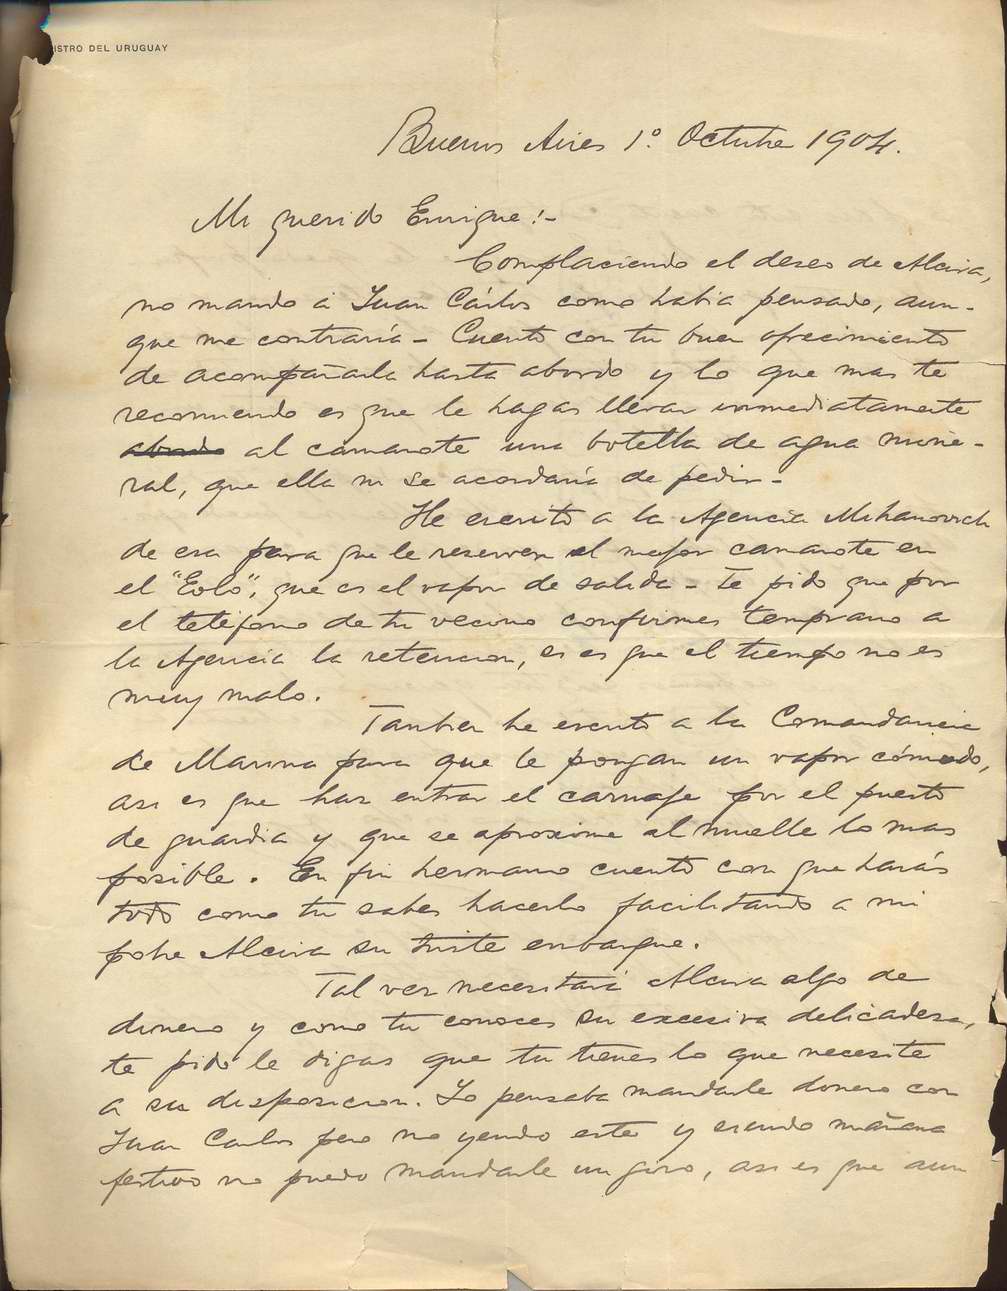 ISTRO DEL URUGUAY
Buenos Aires 1º. Octubre 1904.
Mi querido Enrique:-
Complaciendo el deseo de Alcira,
no mando á Juan Cárlos como habia pensado, aun-
que me contraría - Cuento con tu buen ofrecimiento
de acompañarla hasta abordo y lo que mas te
recomiendo es que le hagas llevar inmediatamente
abordo al camarote una botella de agua mine-
ral, que ella ni se acordaría de pedir -
He escrito a la Agencia Mihanovich
de esa para que le reserven el mejor camarote en
el "Eolo", que es el vapor de salida - Te pido que por
el teléfono de tu vecino confirmes temprano a
la Agencia la retencion, si es que el tiempo no es
muy malo.
Tambien he escrito a la Comandancia
de Marina para que le pongan un vapor cómodo,
asi es que haz entrar el carruaje por el puesto
de guardia y que se aproxime al muelle lo mas
posible. En fin hermano cuento con que harás
todo como tu sabes hacerlo facilitando a mi
pobre Alcira su triste embarque.
Tal vez necesitará Alcira algo de
dinero y como tu conoces su excesiva delicadesa,
te pido le digas que tu tienes lo que necesite
a su disposicion. Yo pensaba mandarle dinero con
Juan Carlos pero no yendo este y siendo mañana
festivo no puedo mandarle un giro, asi es que aun